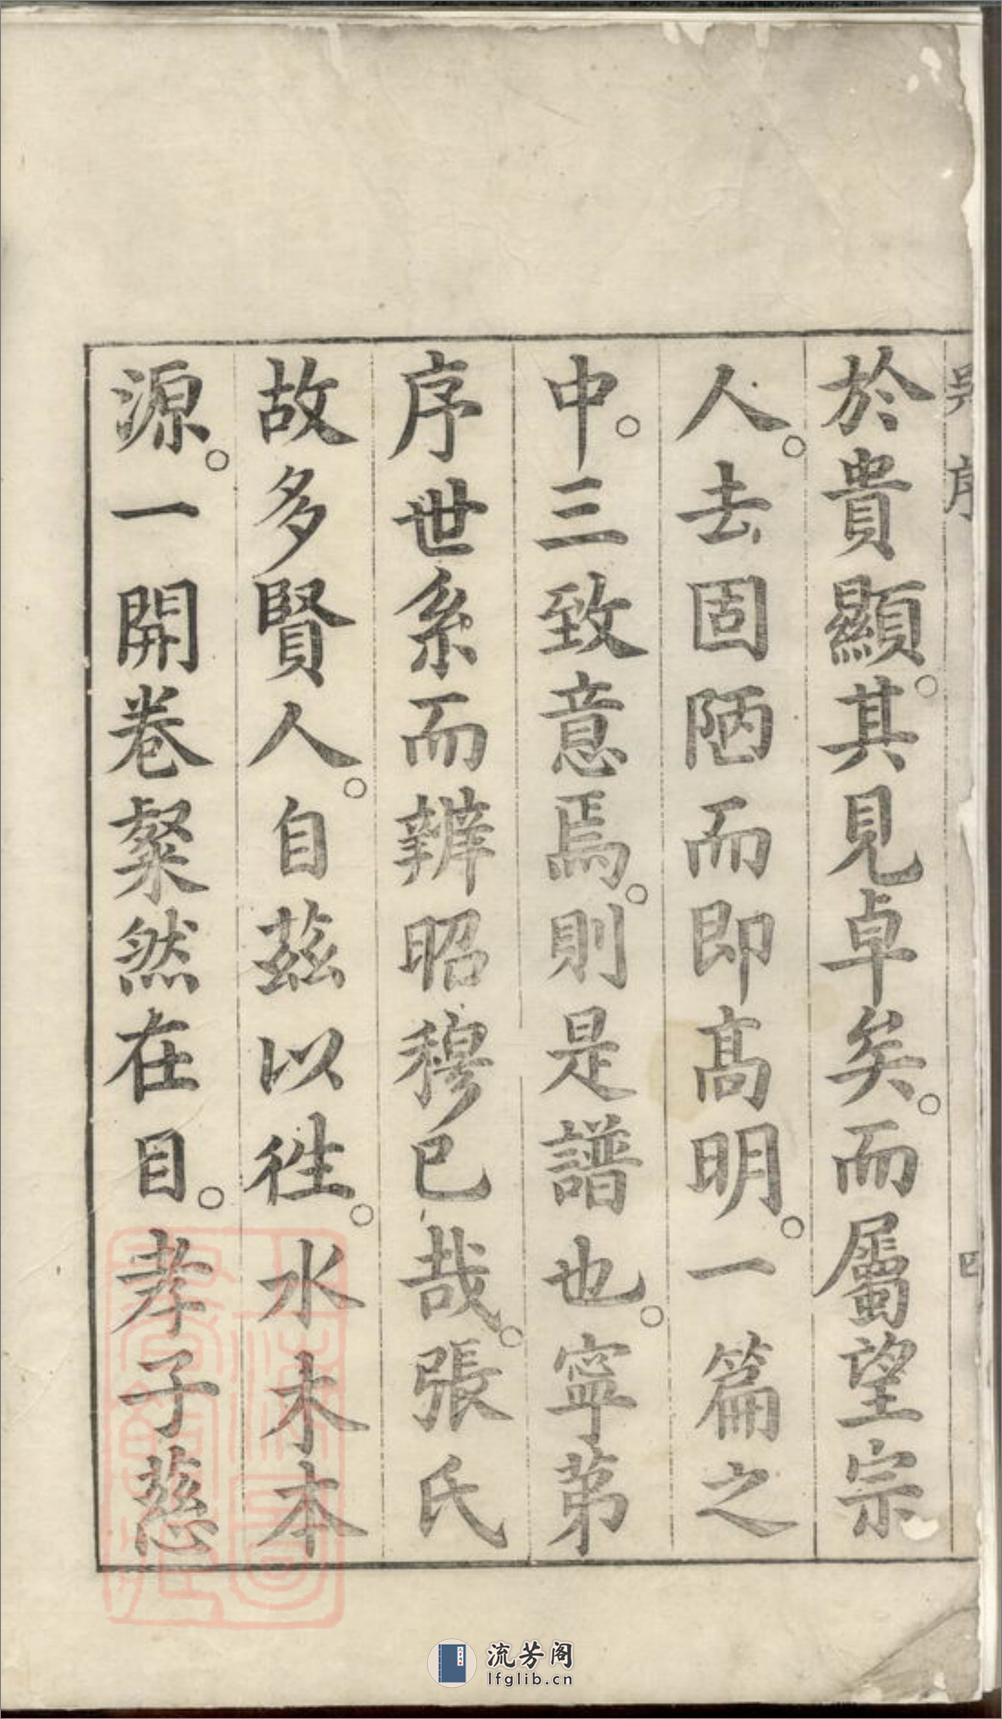 序
於貴顯。其見卓矣。而屬望宗
人。去固陋而即髙明。一篇之
中。三致意焉。則是譜也。寧苐
序世系而辨昭穆已哉。張氏
故多賢人。自茲以徃。水木本
源。一開卷粲然在目。孝子慈
流芳阁
lfglib.cn